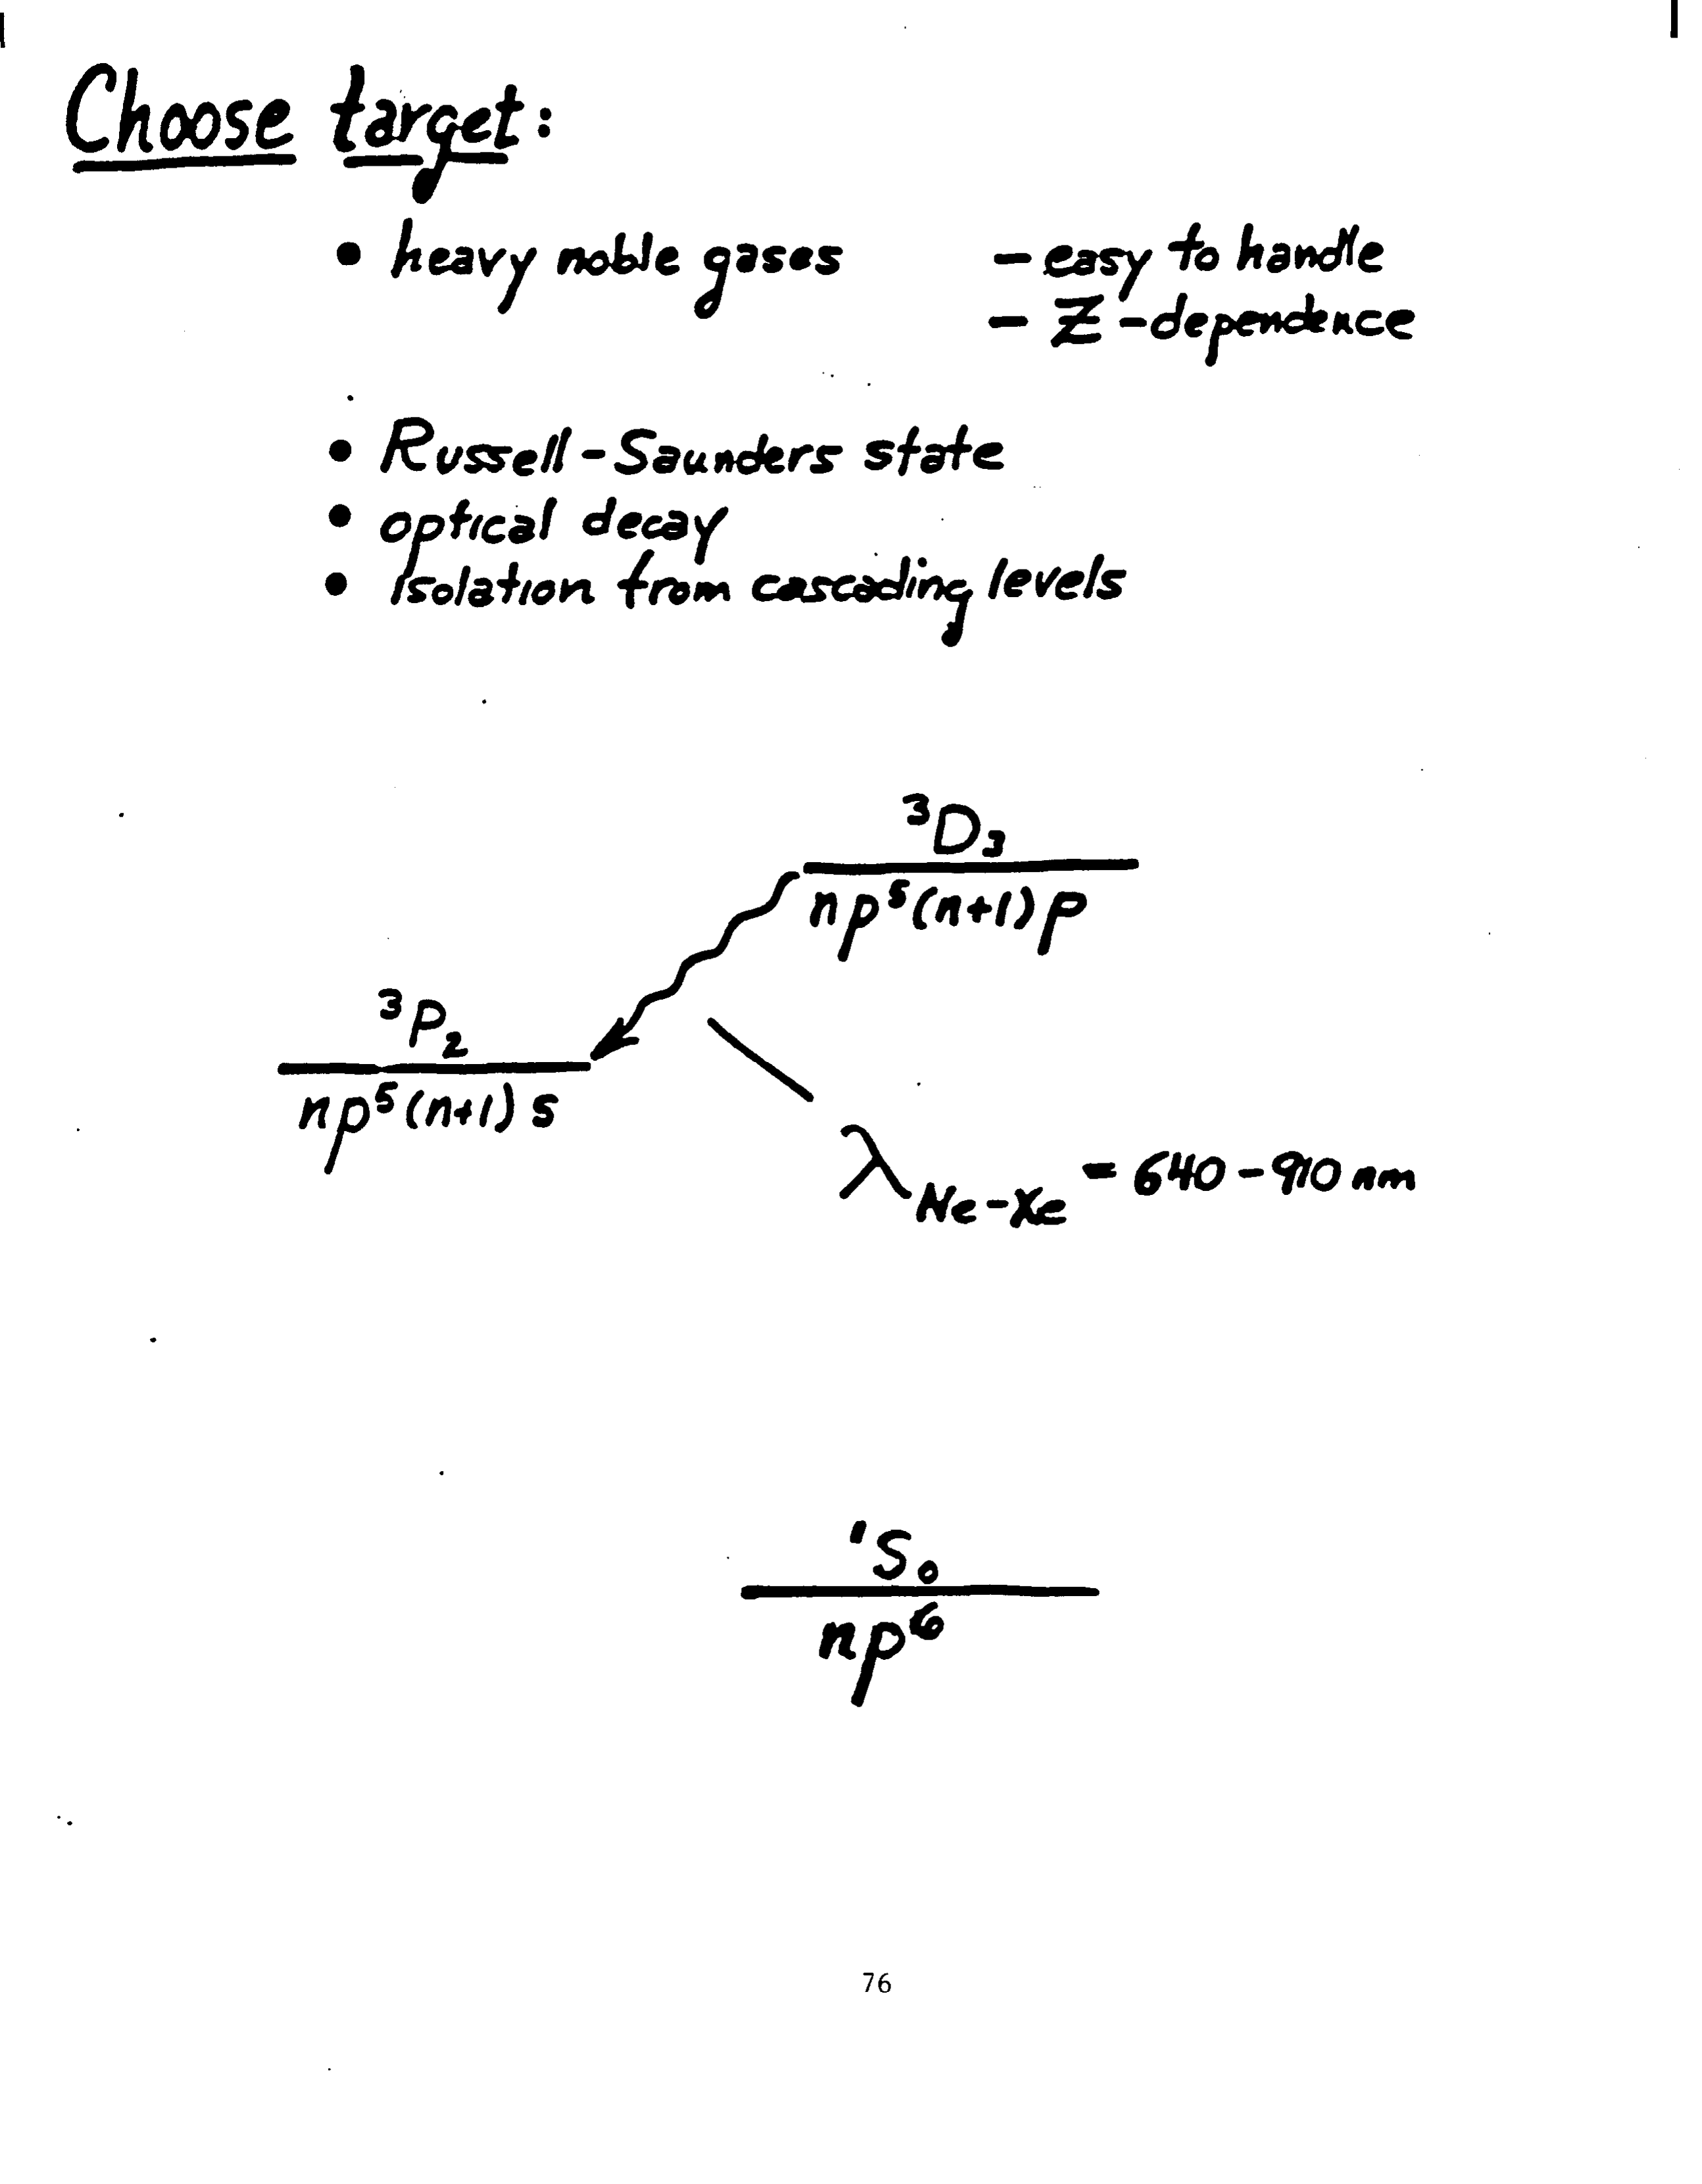 Choose target:
• heavy noble gases – easy to handle
– Z-dependence
• Russell-Saunders state
• optical decay
• isolation from cascading levels
³D₃
np⁵(n+1)p
³P₂
np⁵(n+1)s
λ_Ne-Xe = 640-910 nm
¹S₀
np⁶
76